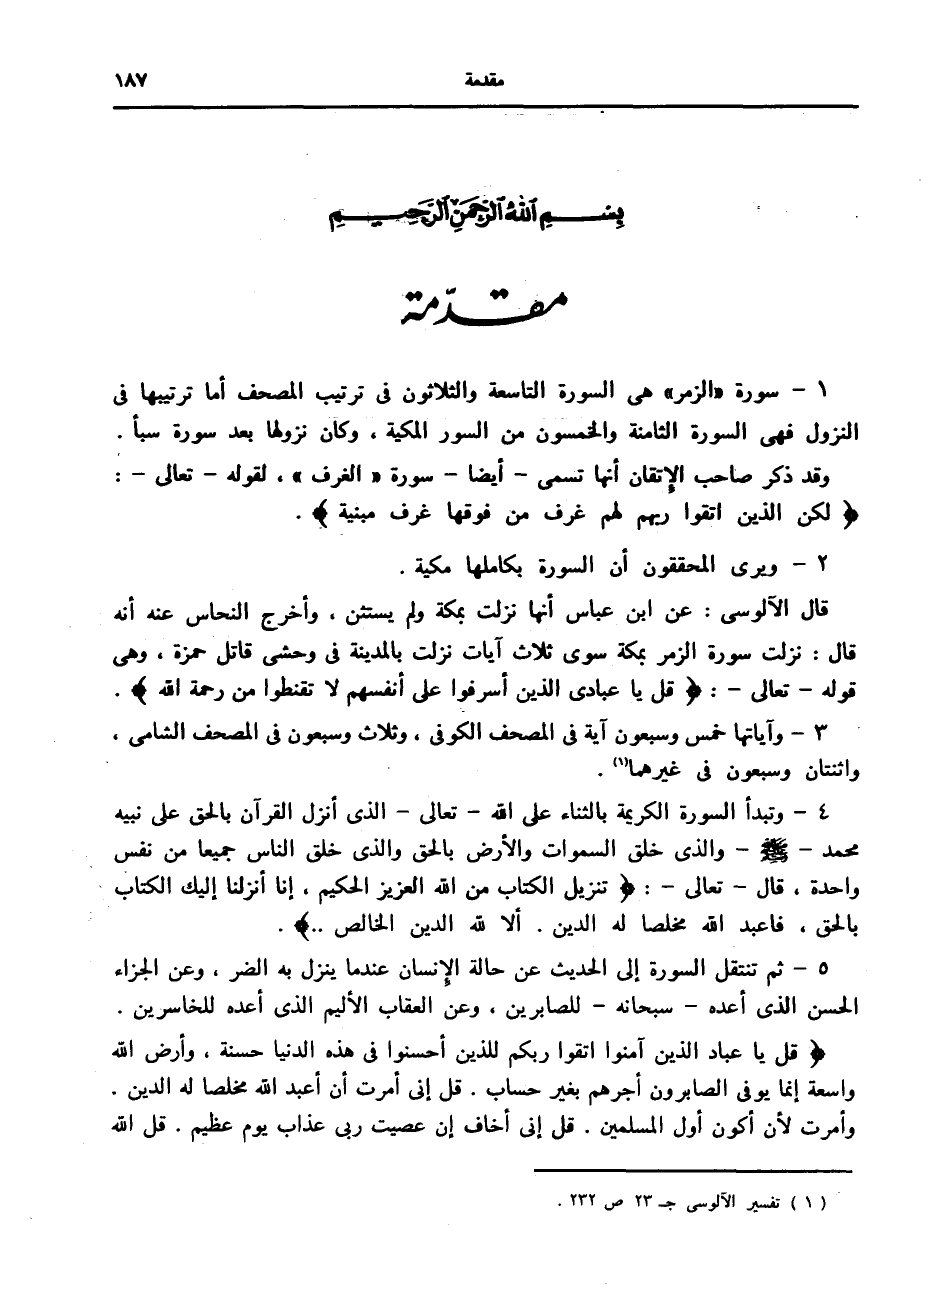 مقدمة ١٨٧
بسم الله الرحمن الرحيم
مقدّمة
١ - سورة «الزمر» هى السورة التاسعة والثلاثون فى ترتيب المصحف أما ترتيبها فى
النزول فهى السورة الثامنة والخمسون من السور المكية ، وكان نزولها بعد سورة سبأ .
وقد ذكر صاحب الإتقان أنها تسمى - أيضا - سورة « الغرف » ، لقوله - تعالى - :
﴿ لكن الذين اتقوا ربهم لهم غرف من فوقها غرف مبنية ﴾ .
٢ - ويرى المحققون أن السورة بكاملها مكية .
قال الآلوسى : عن ابن عباس أنها نزلت بمكة ولم يستثن ، وأخرج النحاس عنه أنه
قال : نزلت سورة الزمر بمكة سوى ثلاث آيات نزلت بالمدينة فى وحشى قاتل حمزة ، وهى
قوله - تعالى - : ﴿ قل يا عبادى الذين أسرفوا على أنفسهم لا تقنطوا من رحمة الله ﴾ .
٣ - وآياتها خمس وسبعون آية فى المصحف الكوفى ، وثلاث وسبعون فى المصحف الشامى ،
واثنتان وسبعون فى غيرهما(١) .
٤ - وتبدأ السورة الكريمة بالثناء على الله - تعالى - الذى أنزل القرآن بالحق على نبيه
محمد - ﷺ - والذى خلق السموات والأرض بالحق والذى خلق الناس جميعا من نفس
واحدة ، قال - تعالى - : ﴿ تنزيل الكتاب من الله العزيز الحكيم ، إنا أنزلنا إليك الكتاب
بالحق ، فاعبد الله مخلصا له الدين . ألا لله الدين الخالص ..﴾ .
٥ - ثم تنتقل السورة إلى الحديث عن حالة الإنسان عندما ينزل به الضر ، وعن الجزاء
الحسن الذى أعده - سبحانه - للصابرين ، وعن العقاب الأليم الذى أعده للخاسرين .
﴿ قل يا عباد الذين آمنوا اتقوا ربكم للذين أحسنوا فى هذه الدنيا حسنة ، وأرض الله
واسعة إنما يوفى الصابرون أجرهم بغير حساب . قل إنى أمرت أن أعبد الله مخلصا له الدين .
وأمرت لأن أكون أول المسلمين . قل إنى أخاف إن عصيت ربى عذاب يوم عظيم . قل الله
( ١ ) تفسير الآلوسى جـ ٢٣ ص ٢٣٢ .